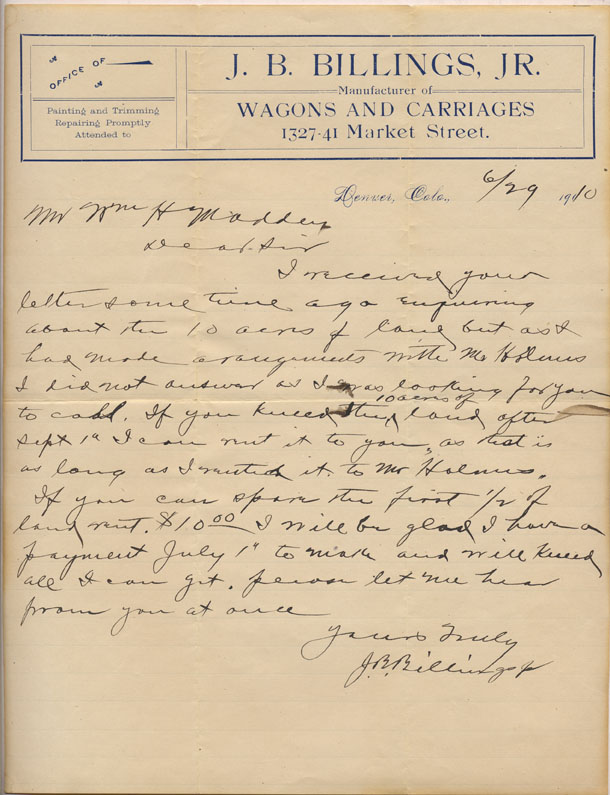 OFFICE OF
Painting and Trimming
Repairing Promptly
Attended to
J. B. BILLINGS, JR.
Manufacturer of
WAGONS AND CARRIAGES
1327-41 Market Street.
Denver, Colo., 6/29 1910
Mr Wm H Madden
Dear Sir
I received your
letter some time ago enquiring
about the 10 acres of land but as I
had made arangements with Mr Holmes
I did not answer as I was looking for you
to call. If you kneed the 10 acres of land after
Sept 1st I can rent it to you, as that is
as long as I rented it to Mr Holmes.
If you can spare the first 1/2 of
land rent. $10 00 I will be glad I have a
payment July 1st to make and will kneed
all I can git. please let me hear
from you at once
Yours Truly
J.B. Billings Jr